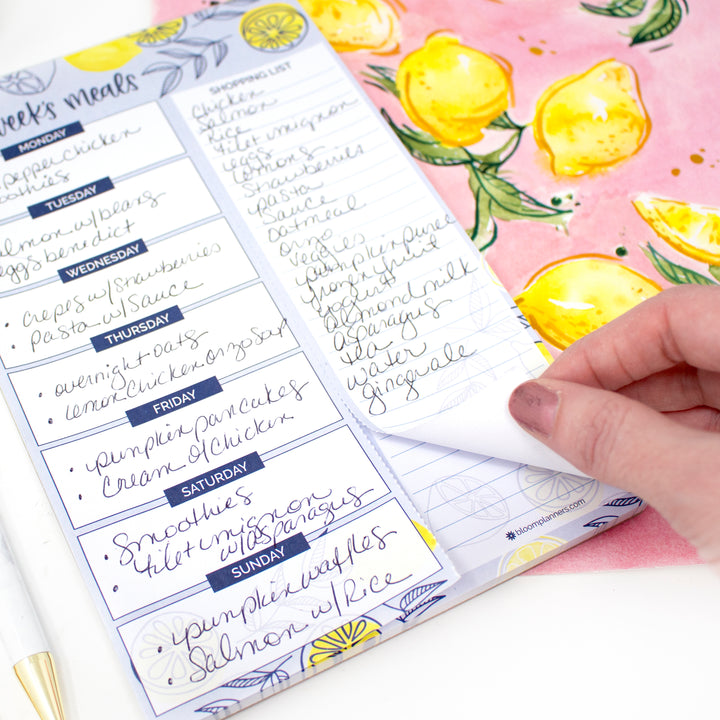 week's meals
MONDAY
pepper chicken
smoothies
TUESDAY
salmon w/beans
eggs benedict
WEDNESDAY
• crepes w/strawberries
• pasta w/sauce
THURSDAY
• overnight oats
• lemon chicken orzo soup
FRIDAY
• pumpkin pancakes
• cream of chicken
SATURDAY
• Smoothies
• filet mignon
w/asparagus
SUNDAY
• pumpkin waffles
• Salmon w/Rice
SHOPPING LIST
Chicken
Salmon
Rice
filet mignon
eggs
lemons
strawberries
pasta
Sauce
oatmeal
orzo
veggies
pumpkin puree
frozen fruit
yogurt
almond milk
asparagus
tea
water
ginger ale
bloomplanners.com